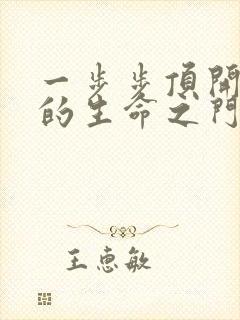 一步步頂開
的生命之門
王惠敏